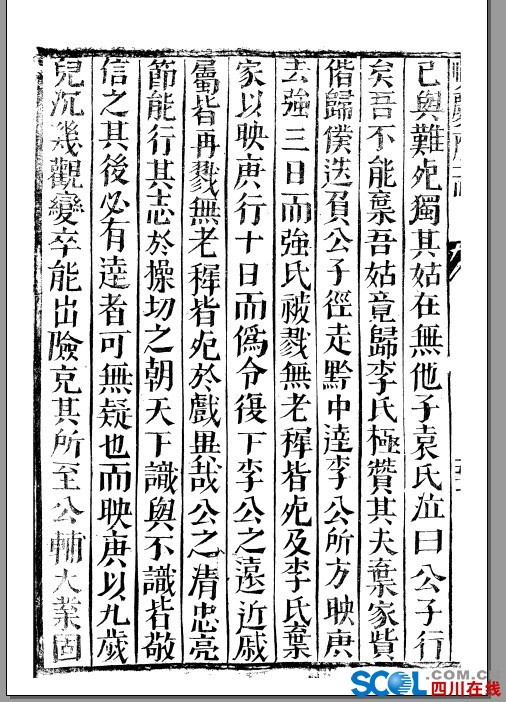 已與難死獨其姑在無他子袁氏泣曰公子行
矣吾不能棄吾姑竟歸李氏極贊其夫棄家貲
偕歸僕迭負公子徑走黔中達李公所方映庚
去強三日而強氏被戮無老穉皆死及李氏棄
家以映庚行十日而僞令復下李公之遠近戚
屬皆再戮無老穉皆死於戲異哉公之清忠亮
節能行其志於操切之朝天下識與不識皆敬
信之其後必有達者可無疑也而映庚以九歲
兒沉幾觀變卒能出險克其所至公輔大業固
SCOL.COM.CN
四川在线